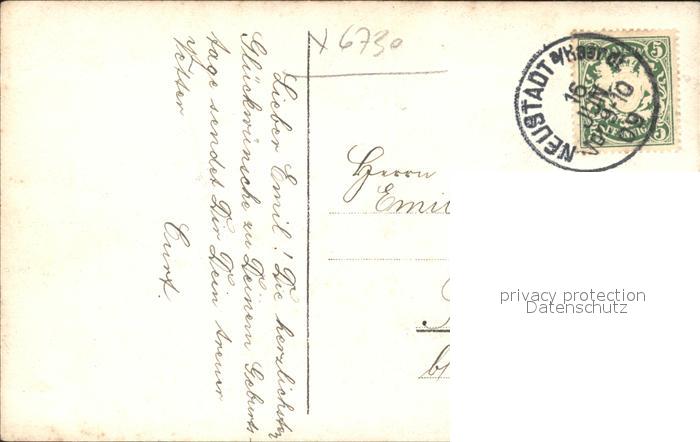 x 6730
Lieber Emil! Die herzlichsten
Glückwünsche zu Deinem Geburts-
tage sendet Dir Dein treuer
Vetter
Curt.
Herrn
Emil
b/
NEUSTADT a/Haardt
16 JUN
Vor. 9-10
09
5
5
privacy protection
Datenschutz